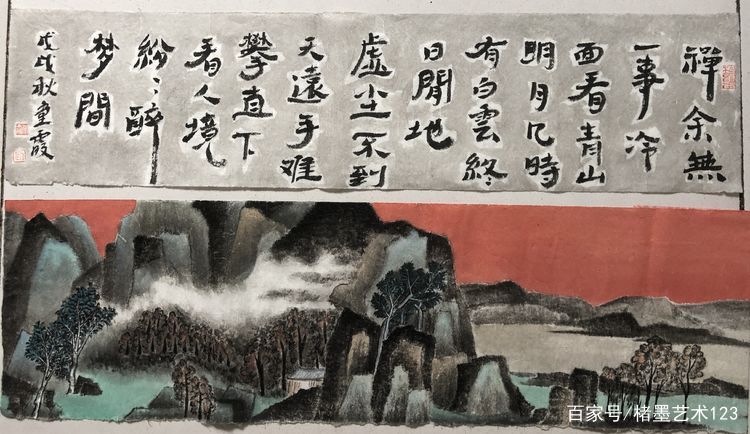 禪余無
一事冷
面看青山
明月几時
有白雲終
日閒地
虚尘不到
天遠手难
攀直下
看人境
紛々醉
梦間
戊戌秋霞
百家号/楮墨艺术123